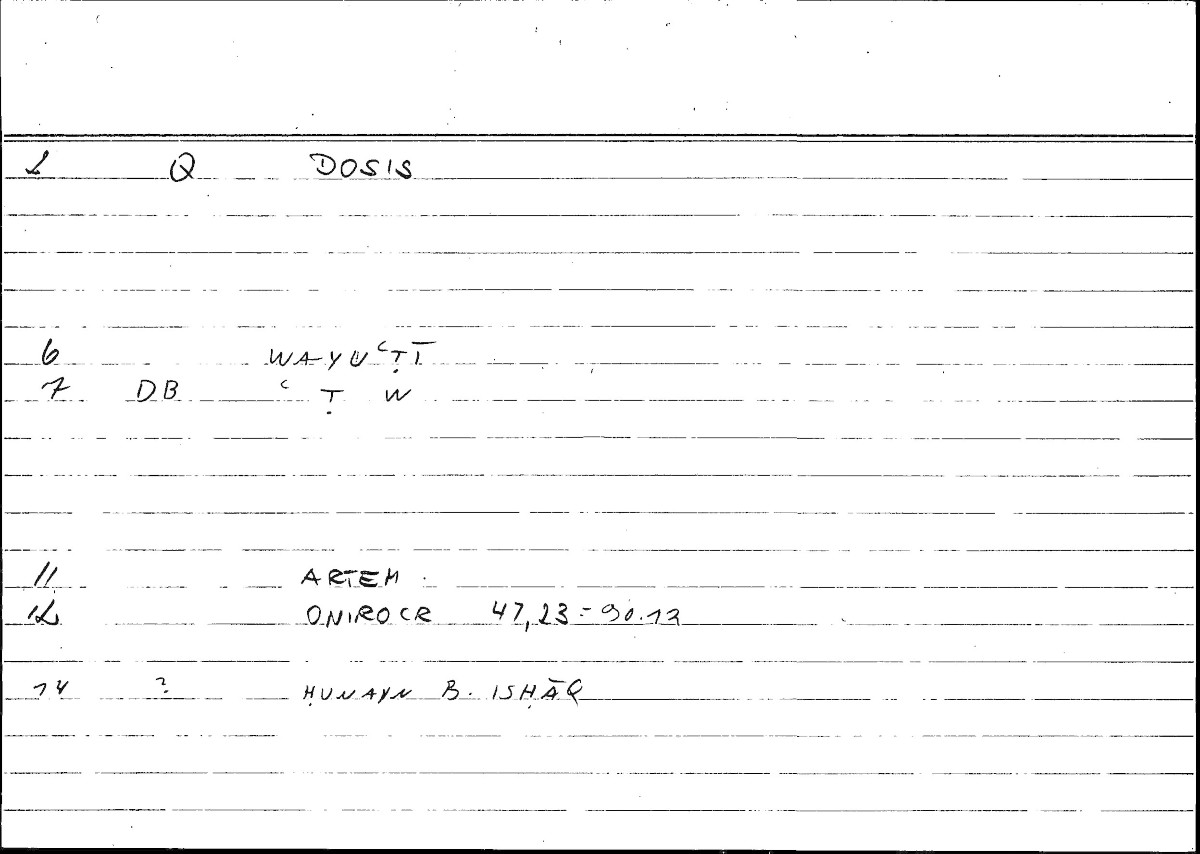 1 Q DOSIS
6 WAYUʿṬĪ
7 DB ʿ Ṭ W
11 ARTEM.
12 ONIROCR 47,23 = 90.13
14 ? ḤUNAYN B. ISḤĀQ